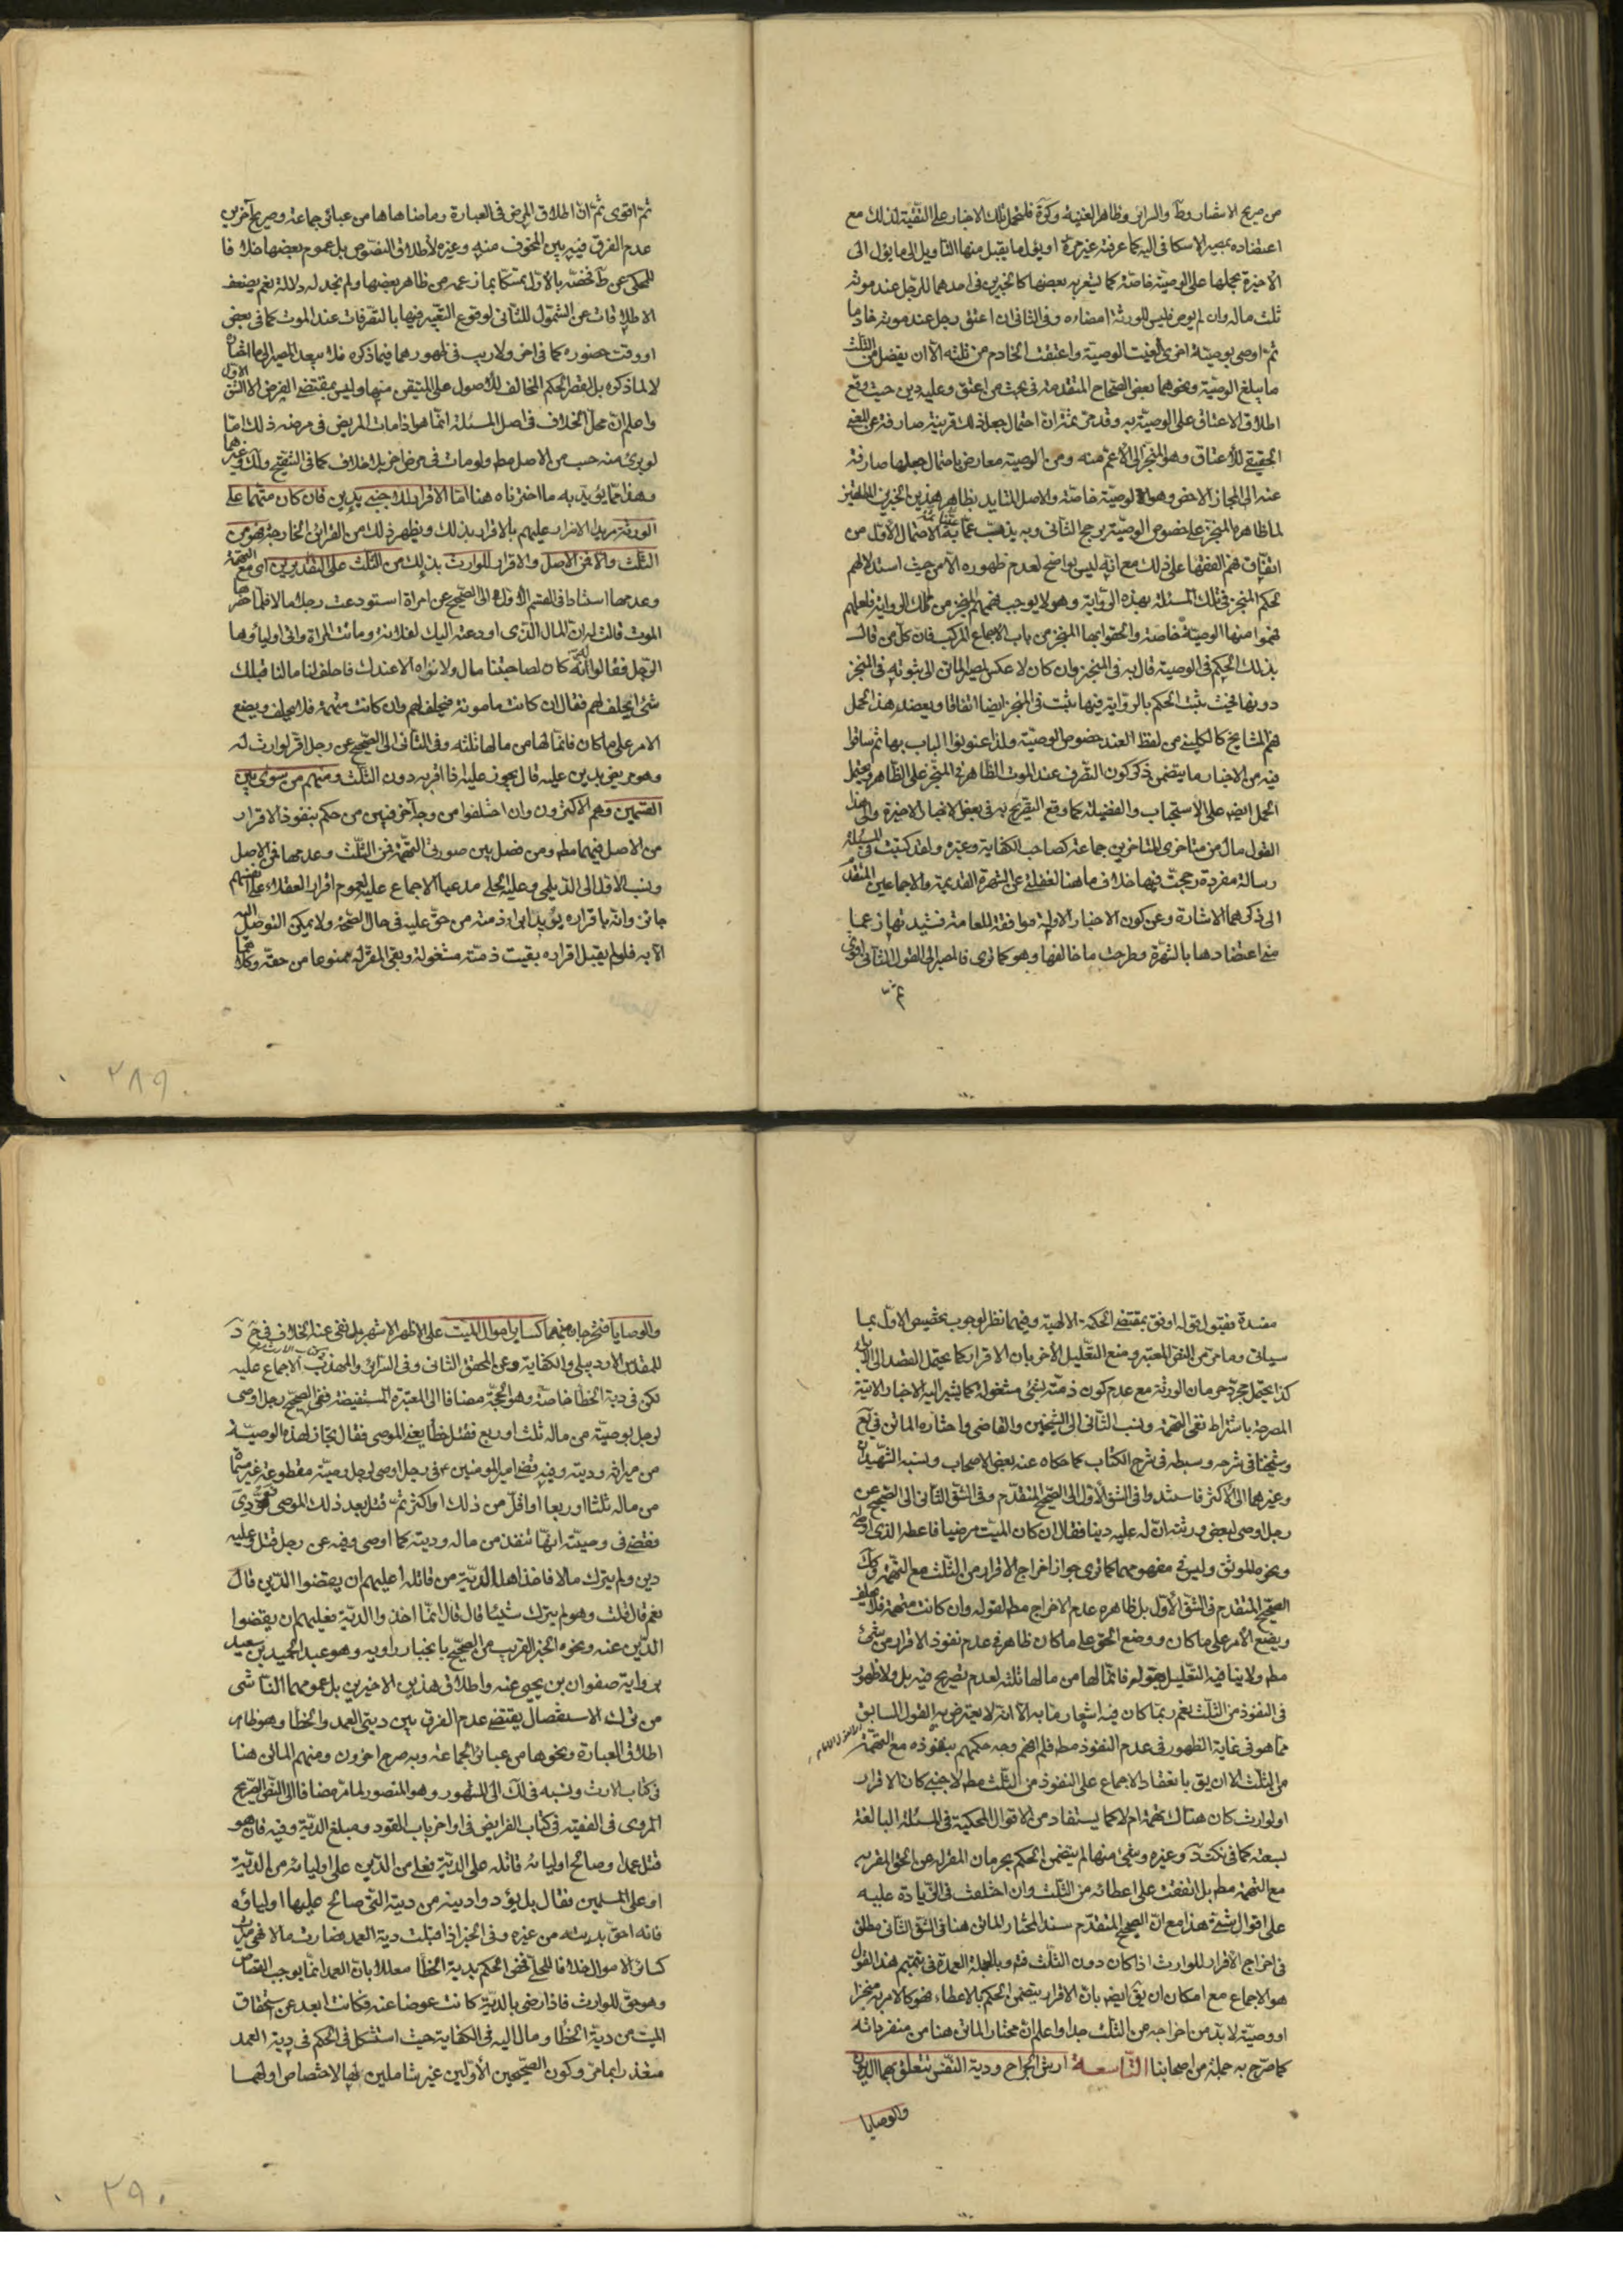 من صريح الاستبصار وط والسرائر وظاهر الغنية وكرة فلتحمل تلك الاخبار على التقية لذلك مع
اعتضاده بمصير الاسكافي اليه كما عرفته غير مرة او يؤل ما يقبل منها التاويل الى ما يؤل الى
الاخيرة بحملها على الوصية خاصة كما يشعر به بعضها كالخبرين في احدهما للرجل عند موته
ثلث ماله وان لم يوص فليس للورثة امضاءه وفي الثاني ان اعتق رجل عند موته خادما
ثم اوصى بوصية اخرى الغيت الوصية واعتقت الخادم من ثلثه الا ان يفضل من الثلث
ما يبلغ الوصية ونحوهما بعض الصحاح المتقدمة في بحث من اعتق وعليه دين حيث وقع
اطلاق الاعتاق على الوصية به وقد مر ثمة ان احتمال جعل ذلك قرينة صارفة عن المعنى
الحقيقي للاعتاق وهو المنجز الى الاعم منه ومن الوصية معارض باحتمال جعلها صارفة
عنه الى المجاز الاخص وهو الوصية خاصة والاصل للتايد بظاهر هذين الخبرين
لما ظاهره المنجز على خصوص الوصية يرجح الثاني وبه يذهب عما الاحتمال الاول من
اتفاق فهم الفقهاء على ذلك مع انه ليس بواضح لعدم ظهوره الا من حيث استدلالهم
لحكم المنجز في تلك المسئلة بهذه الرواية وهو لا يوجب فهمهم المنجز من تلك الرواية فلعلهم
فهموا منها الوصية خاصة والحقوا بها المنجز من باب الاجماع المركب فان كل من قال
بذلك الحكم في الوصية قال به في المنجز وان كان لا عكس لمصير الماتن الى ثبوته في المنجز
دونها فحيث ثبت الحكم بالرواية فيها ثبت في المنجز ايضا اتفاقا ويعضد هذا الحمل
فهم المشايخ كالكليني من لفظ العند خصوص الوصية ولذا عنونوا الباب بها ثم ساقوا
فيه من الاخبار ما يتضمن ذكر كون التصرف عند الموت الظاهر في المنجز على الظاهر ويحتمل
الحمل ايضا على الاستحباب والفضيلة كما وقع التصريح به في بعض الاخبار الاخيرة والى هذا
القول مال من متاخري المتاخرين جماعة كصاحب الكفاية وغيره ولقد كتبت في المسئلة
رسالة مفردة رجحت فيها خلاف ما هنا لغفلتي عن الشهرة القديمة والاجماعين المتقدم
الى ذكرهما الاشارة وعن كون الاخبار الاولة موافقة للعامة فشيدتها زعما
مني اعتضادها بالشهرة وطرحت ما خالفها وهو كما ترى فالمصير الى القول الثاني اقوى
ثم
ثم اقوى ثم ان اطلاق المرض في العبارة وما ضاهاها من عبائر جماعة وصريح آخرين
عدم الفرق فيه بين المخوف منه وغيره لاطلاق النصوص بل عموم بعضها خلافا
للمحكي عن ط فخصه بالاول تمسكا بما زعمه من ظاهر بعضها ولم نجد له دلالة نعم يضعف
الاطلاقات عن الشمول للثاني لوقوع التقييد فيها بالتصرفات عند الموت كما في بعض
او وقت حضوره كما في اخر ولا ريب في ظهورهما فيما ذكره فلا يبعد المصير الى ما اختاره
لا لما ذكره بل لقصر الحكم المخالف للاصول على المتيقن منها وليس بمقتضى الفرض الا الشق الاول
واعلم ان محل الخلاف في اصل المسئلة انما هو اذا مات المريض في مرضه ذلك اما
لو برئ منه حسب من الاصل مطم ولو مات في مرض اخر بلا خلاف كما في التنقيح ولك وغيرهما
وهذا مما يؤيد به ما اخترناه هنا اما الاقرار للاجنبي بدين فان كان متهما على
الورثة مريدا الاضرار عليهم بالاقرار بذلك ويظهر ذلك من القرائن الخارجة فهو من
الثلث والا فمن الاصل والاقرار للوارث بذلك من الثلث على التقديرين اى مع التهمة
وعدمها استنادا في القسم الاول الى الصحيح عن امراة استودعت رجلا مالا فلما حضرها
الموت قالت له ان المال الذى اودعته اليك لفلانة وماتت المراة واتى اولياؤها
الرجل فقالوا انه كان لصاحبتنا مال ولا نراه الا عندك فاحلف لنا ما لنا قبلك
شئ ايحلف لهم فقال ان كانت مامونة فيحلف لهم وان كانت متهمة فلا يحلف ويضع
الامر على ما كان فانما لها من مالها ثلثه وفي الثاني الى الصحيح عن رجل اقر لوارث له
وهو مريض بدين عليه قال يجوز عليه ما اقر به دون الثلث ومنهم من سوى بين
القسمين وهم الاكثرون وان اختلفوا من وجه آخر فبين من حكم بنفوذ الاقرار
من الاصل فيهما مطم ومن فصل بين صورتي التهمة فمن الثلث وعدمها فمن الاصل
ونسب الاول الى الديلمي وعليه الحلي مدعيا الاجماع عليه لعموم اقرار العقلاء على انفسهم
جائز وانه باقراره يؤيد ابراء ذمته من حق عليه في حال الصحة ولا يمكن التوصل اليه
الا به فلو لم يقبل اقراره بقيت ذمته مشغولة وبقى المقر له ممنوعا من حقه وكلاهما
۲۸۹
مفسدة فقبول قوله اوفق بمقتضى الحكمة الالهية وفيهما نظر لوجوب تخصيص الاول بما
سياتي وما مر من النص المعتبر ومنع التعليل الاخر بان الاقرار كما يحتمل القصد الى الابراء
كذا يحتمل مجرد حرمان الورثة مع عدم كون ذمته بشئ مشغولة كما يشير اليه الاخبار الاتية
المصرحة باشتراط نفى التهمة ونسب الثاني الى الشيخين والقاضى واختاره الماتن في يع
وشيخنا في شرحه وبسطه في شرح الكتاب كما حكاه عنه بعض الاصحاب ونسبه الشهيدان
وغيرهما الى الاكثر فاستندوا في الشق الاول الى الصحيح المتقدم وفي الشق الثاني الى الصحيح عن
رجل اوصى لبعض ورثته ان له عليه دينا فقال ان كان الميت مرضيا فاعطه الذى اوصى له
ونحوه الموثق وليس في مفهومهما كما ترى جواز اخراج الاقرار من الثلث مع التهمة وكك
الصحيح المتقدم في الشق الاول بل ظاهره عدم الاخراج مطم لقوله وان كانت متهمة فلا يحلف
ويضع الامر على ما كان ووضع الحق على ما كان ظاهر في عدم نفوذ الاقرار من شئ
مطم ولا ينافيه التعليل بقوله فانما لها من مالها ثلثه لعدم تصريح فيه بل ولا ظهور
في النفوذ من الثلث نعم ربما كان فيه اشعار ما به الا انه لا يعترض به القول السابق
مما هو في غاية الظهور في عدم النفوذ مطم فلم افهم وجه حكمهم بنفوذه مع التهمة
من الثلث الا ان يق بانعقاد الاجماع على النفوذ من الثلث مطم لاجنبي كان الاقرار
او لوارث كان هناك تهمة ام لا كما يستفاد من الاقوال المحكية في المسئلة البالغة
سبعة كما في نكت د وغيره وشئ منها لم يتضمن الحكم بحرمان المقر له عن الحق المقر به
مع التهمة مطم بل اتفقت على اعطائه من الثلث وان اختلفت في الزيادة عليه
على اقوال شتى هذا مع ان الصحيح المتقدم سند المختار الماتن هنا في الشق الثاني مطلق
في اخراج الاقرار للوارث اذا كان دون الثلث فتم وبالجملة العمدة في تتميم هذا القول
هو الاجماع مع امكان ان يق ايضا بان الاقرار يتضمن الحكم بالاعطاء فهو كالامر به منجزا
او وصية لا بد من اخراجه من الثلث جدا واعلم ان مختار الماتن هنا من متفرداته
كما صرح به جملة من اصحابنا التاسعة ارش الجراح ودية النفس تتعلق بهما الديون
والوصايا
والوصايا فتخرجان منهما كساير اموال الميت على الاظهر الاشهر بل نفى عنه الخلاف في
للمقدس الاردبيلي والكفاية وعن المحقق الثاني وفي السرائر والمهذب الاجماع عليه
لكن في دية الخطأ خاصة وهو الحجة مضافا الى المعتبرة المستفيضة ففي الصحيح رجل اوصى
لرجل بوصية من ماله ثلث او ربع فقتل خطأ يعنى الموصى فقال يجاز لهذه الوصية
من ميراثه وديته وفيه قضى امير المومنين ع في رجل اوصى لرجل وصية مقطوعة غير مسماة
من ماله ثلثا او ربعا او اقل من ذلك او اكثر ثم قتل بعد ذلك الموصى فودى
فقضى في وصيته انها تنفذ من ماله وديته كما اوصى وفيه عن رجل قتل وعليه
دين ولم يترك مالا فاخذ اهله الدية من قاتله اعليهم ان يقضوا الدين قال
نعم قال قلت وهو لم يترك شيئا قال قال انما اخذوا الدية فعليهم ان يقضوا
الدين عنه ونحوه الخبر القريب من الصحيح بانجبار راويه وهو عبد الحميد بن سعيد
برواية صفوان بن يحيى عنه واطلاق هذين الاخيرين بل عمومهما الناشى
من ترك الاستفصال يقتضى عدم الفرق بين ديتى العمد والخطا وهو ظاهر
اطلاق العبارة ونحوها من عبائر الجماعة وبه صرح اخرون ومنهم الماتن هنا
في كتاب الارث ونسبه في لك الى المشهور وهو المنصور لما مر مضافا الى النص الصريح
المروى في الفقيه في كتاب الفرايض في اواخر باب القود ومبلغ الدية وفيه فان هو
قتل عمدا وصالح اولياؤه قاتله على الدية فعلى من الدين على اوليائه من الدية
او على المسلمين فقال بل يؤدوا دينه من ديته التى صالح عليها اولياؤه
فانه احق بديته من غيره وفي الخبر اذا قبلت دية العمد فصارت مالا فهي ميراث
كسائر الاموال خلافا للحلى فخص الحكم بدية الخطا معللا بان العمد انما يوجب القصاص
وهو حق للوارث فاذا رضى بالدية كانت عوضا عنه فكانت ابعد عن استحقاق
الميت من دية الخطأ ومال اليه في الكفاية حيث استشكل في الحكم في دية العمد
معتذرا بما مر وكون الصحيحين الاولين غير شاملين لها لاختصاص اولهما
۲۹۰